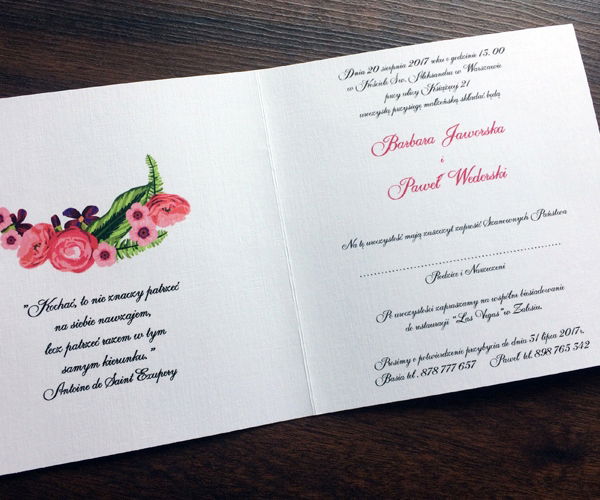 "Kochać, to nie znaczy patrzeć
na siebie nawzajem,
lecz patrzeć razem w tym
samym kierunku."
Antoine de Saint Exupery
Dnia 20 sierpnia 2017 roku o godzinie 15.00
w Kościele Św. Aleksandra w Warszawie
przy ulicy Książęcej 21
uroczystą przysięgę małżeńską składać będą
Barbara Jaworska
i
Paweł Wederski
Na tę uroczystość mają zaszczyt zaprosić Szanownych Państwa
Rodzice i Narzeczeni
Po uroczystości zapraszamy na wspólne biesiadowanie
do restauracji "Las Vegas" w Zalesiu.
Prosimy o potwierdzenie przybycia do dnia 31 lipca 2017r.
Basia tel. 878 777 657 Paweł tel. 898 765 342